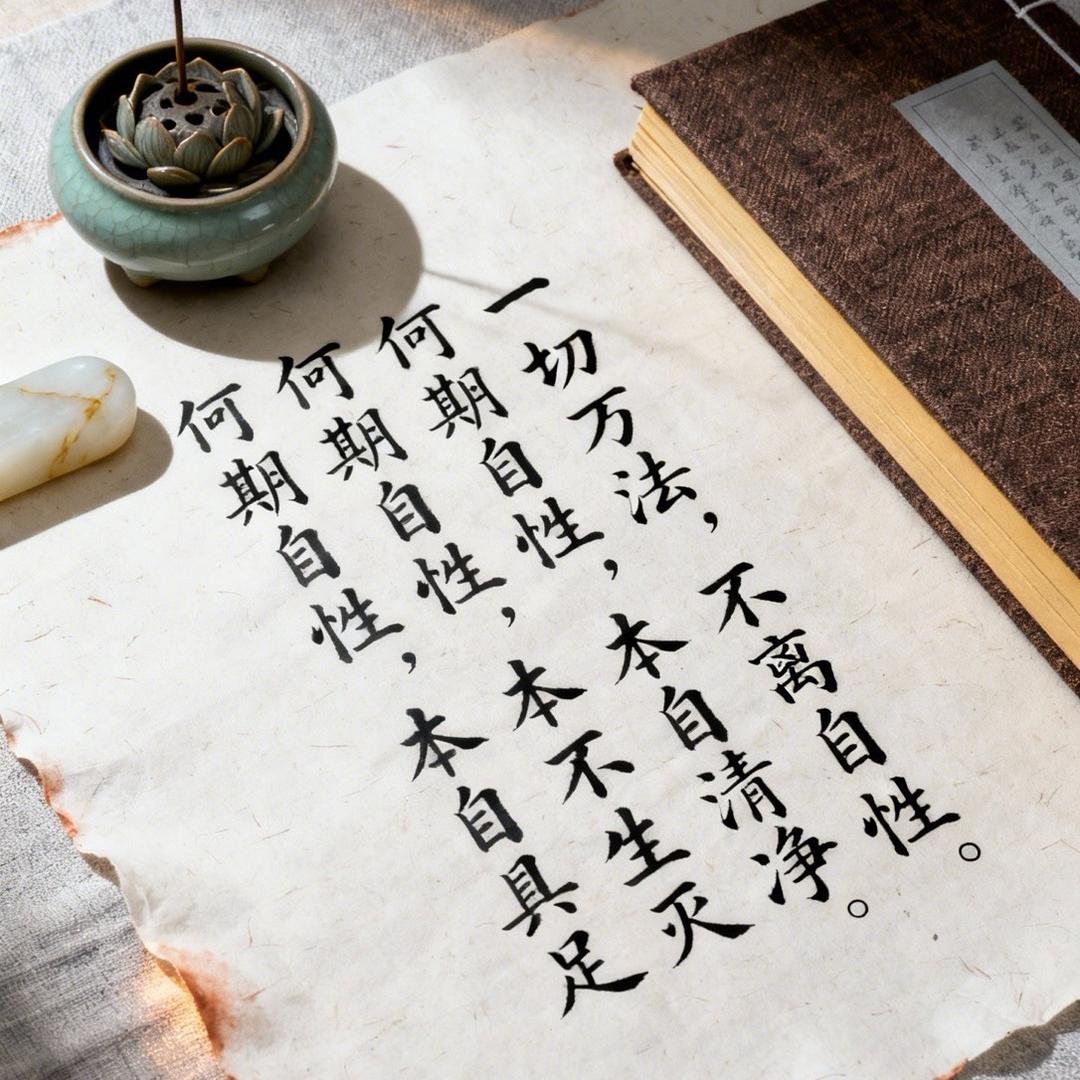 一切万法，不离自性。
何期自性，本自清净。
何期自性，本不生灭
何期自性，本自具足